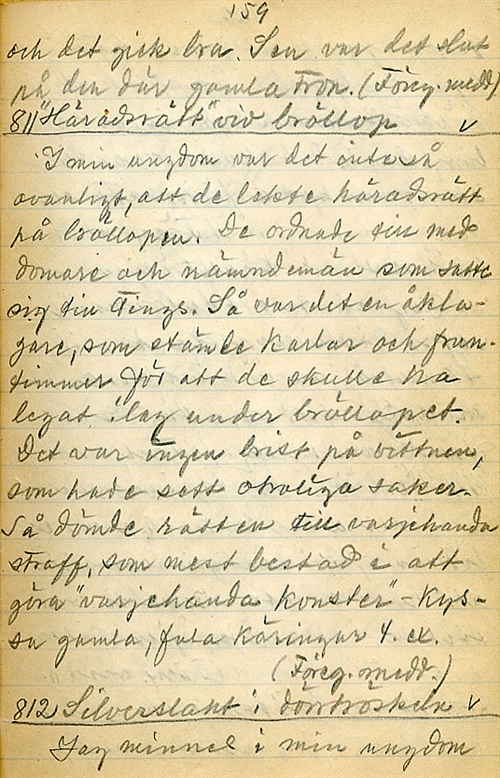 159
och det gick bra. Sen var det slut
på den där gamla tron. (Föreg. medd)
811 "Häradsrätt" vid bröllop v
I min ungdom var det inte så
ovanligt, att de lekte häradsrätt
på bröllopen. De ordnade till med
domare och nämndemän som satte
sig till Tings. Så var det en åkla-
gare, som stämde karlar och frun-
timmer för att de skulle ha
legat ilag under bröllopet.
Det var ingen brist på vittnen,
som hade sett otroliga saker.
Så dömde rätten till varjehanda
straff, som mest bestod i att
göra "varjehanda konster" - kys-
sa gamla, fula käringar t. ex.
(Föreg. medd.)
812 Silverslant i dörrtröskeln v
Jag minnes i min ungdom